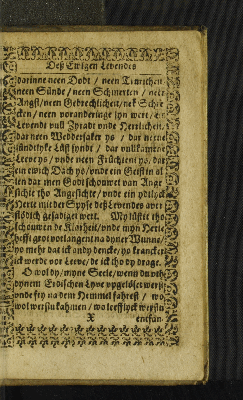 Deß Ewigen Levendes
darinne neen Dodt / neen Truwricheit
neen Sünde / neen Schmerten / neen
Angst / neen Gebrechlichent / nek Schre
cken / neen voranderinge syn wert / ein
Levendt vull Zyradt vnde Herlicheit,
dar neen Weddersaker ys / dar neene
sündtlyke Lüst syndt / dar vullkamene
Leeve ys / vnde neen Früchten ys, dar
ein ewich Dach ys / vnde ein Geist in al
len dar men Godt schouwet van Ange
sichte tho Angesichte / vnde ein ydtlyck
Herte mit der Spyse deß Levendes aver
flödich gesadiget wert. My lüstet tho
schouwen de Klarheit / vnde myn Herte
hefft grot vorlangent na dyner Wunne /
yo mehr dat ick an dy dencke / yo krancker
ick werde vor Leeve / de ick tho dy drage.
O wol dy / myne Seele / wenn du vth
dynem Erdischen Lyve vpgelöset werst
vnde fry na dem Hemmel fahrest / wo
wol werstu kahmen / wo leefflyck werstu
X entfan-